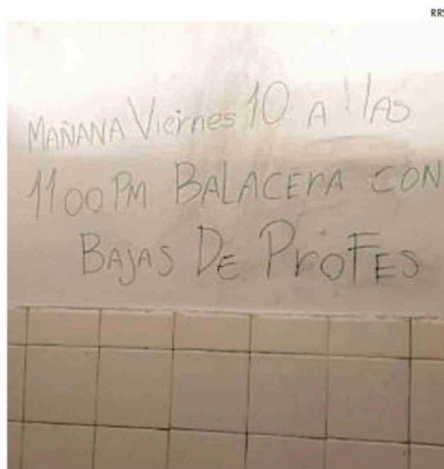 MAÑANA Viernes 10 A llAS
1100 PM BALACERA CON
BAJAS DE PROFES